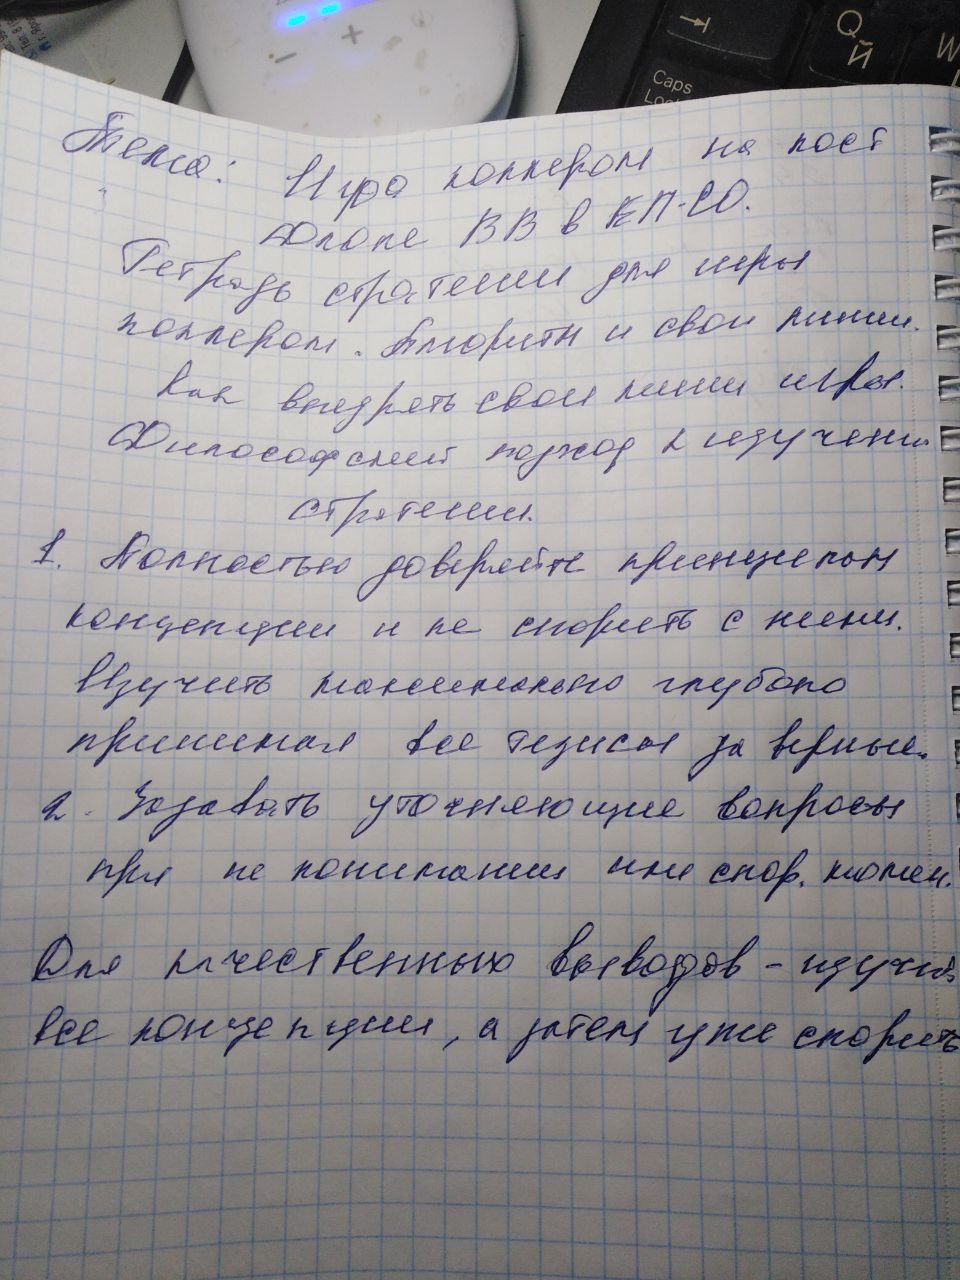 Тема: Игра коллером на пост
Флопе ВВ в КП-СО.
Тетрадь стратегии для игры
коллером. Алгоритм и свои линии.
Как внедрять свои линии игры.
Философский подход к изучению
стратегии.
1. Полностью доверяйте принципам
концепции и не спорить с ними.
Изучить максимально глубоко
принимая все тезисы за верные.
2. Задавать уточняющие вопросы
при не понимании или спор. момен.
Для качественных выводов - изучить
все концепции, а затем уже спорить
+
-
Caps
Lock
Q
Й
W